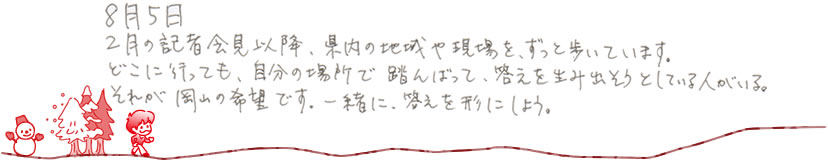 8月5日
2月の記者会見以降、県内の地域や現場を、ずっと歩いています。
どこに行っても、自分の場所で踏んばって、答えを生み出そうとしている人がいる。
それが岡山の希望です。一緒に、答えを形にしよう。